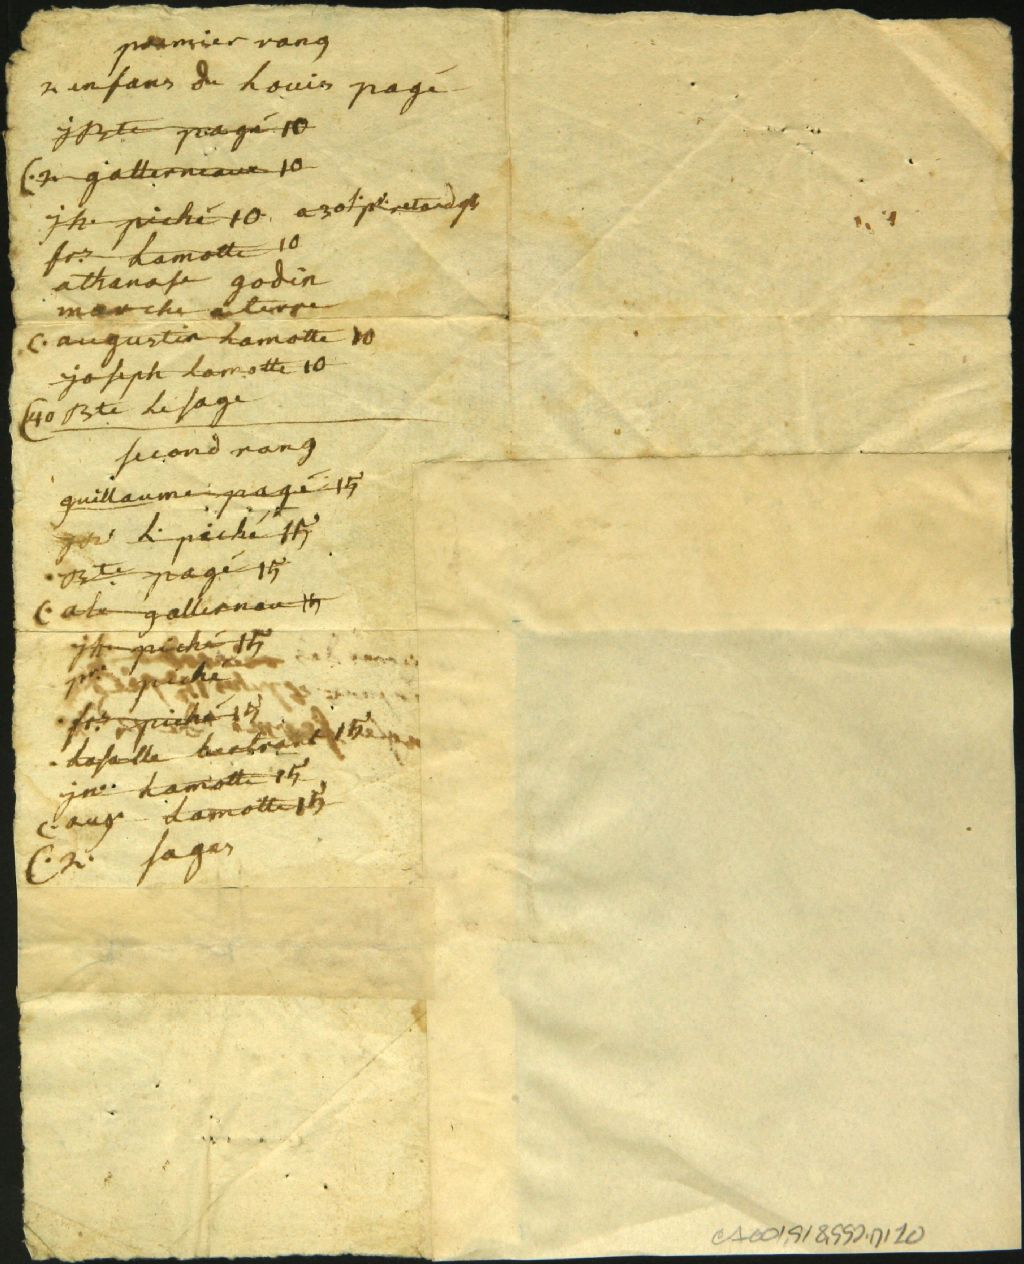 premier rang
2 enfans de Louis pagé
jBte pagé 10
C. 2. gatterneaux 10
jh. piché 10. a 30s pr. retard
frs Lamotte 10
athanase godin
marche a terre
C. augustin Lamotte 10
joseph Lamotte 10
C 40 Bte Le sage
second rang
guillaume pagé 15
L. piché 15
Bte pagé 15
C. ale gatternau 15
jh. piché 15
pr. piché
frs. piché 15
Lasalle 15
jn. Lamotte 15
C. aug. Lamotte 15
C. 2. sages
CA001918,992.n120